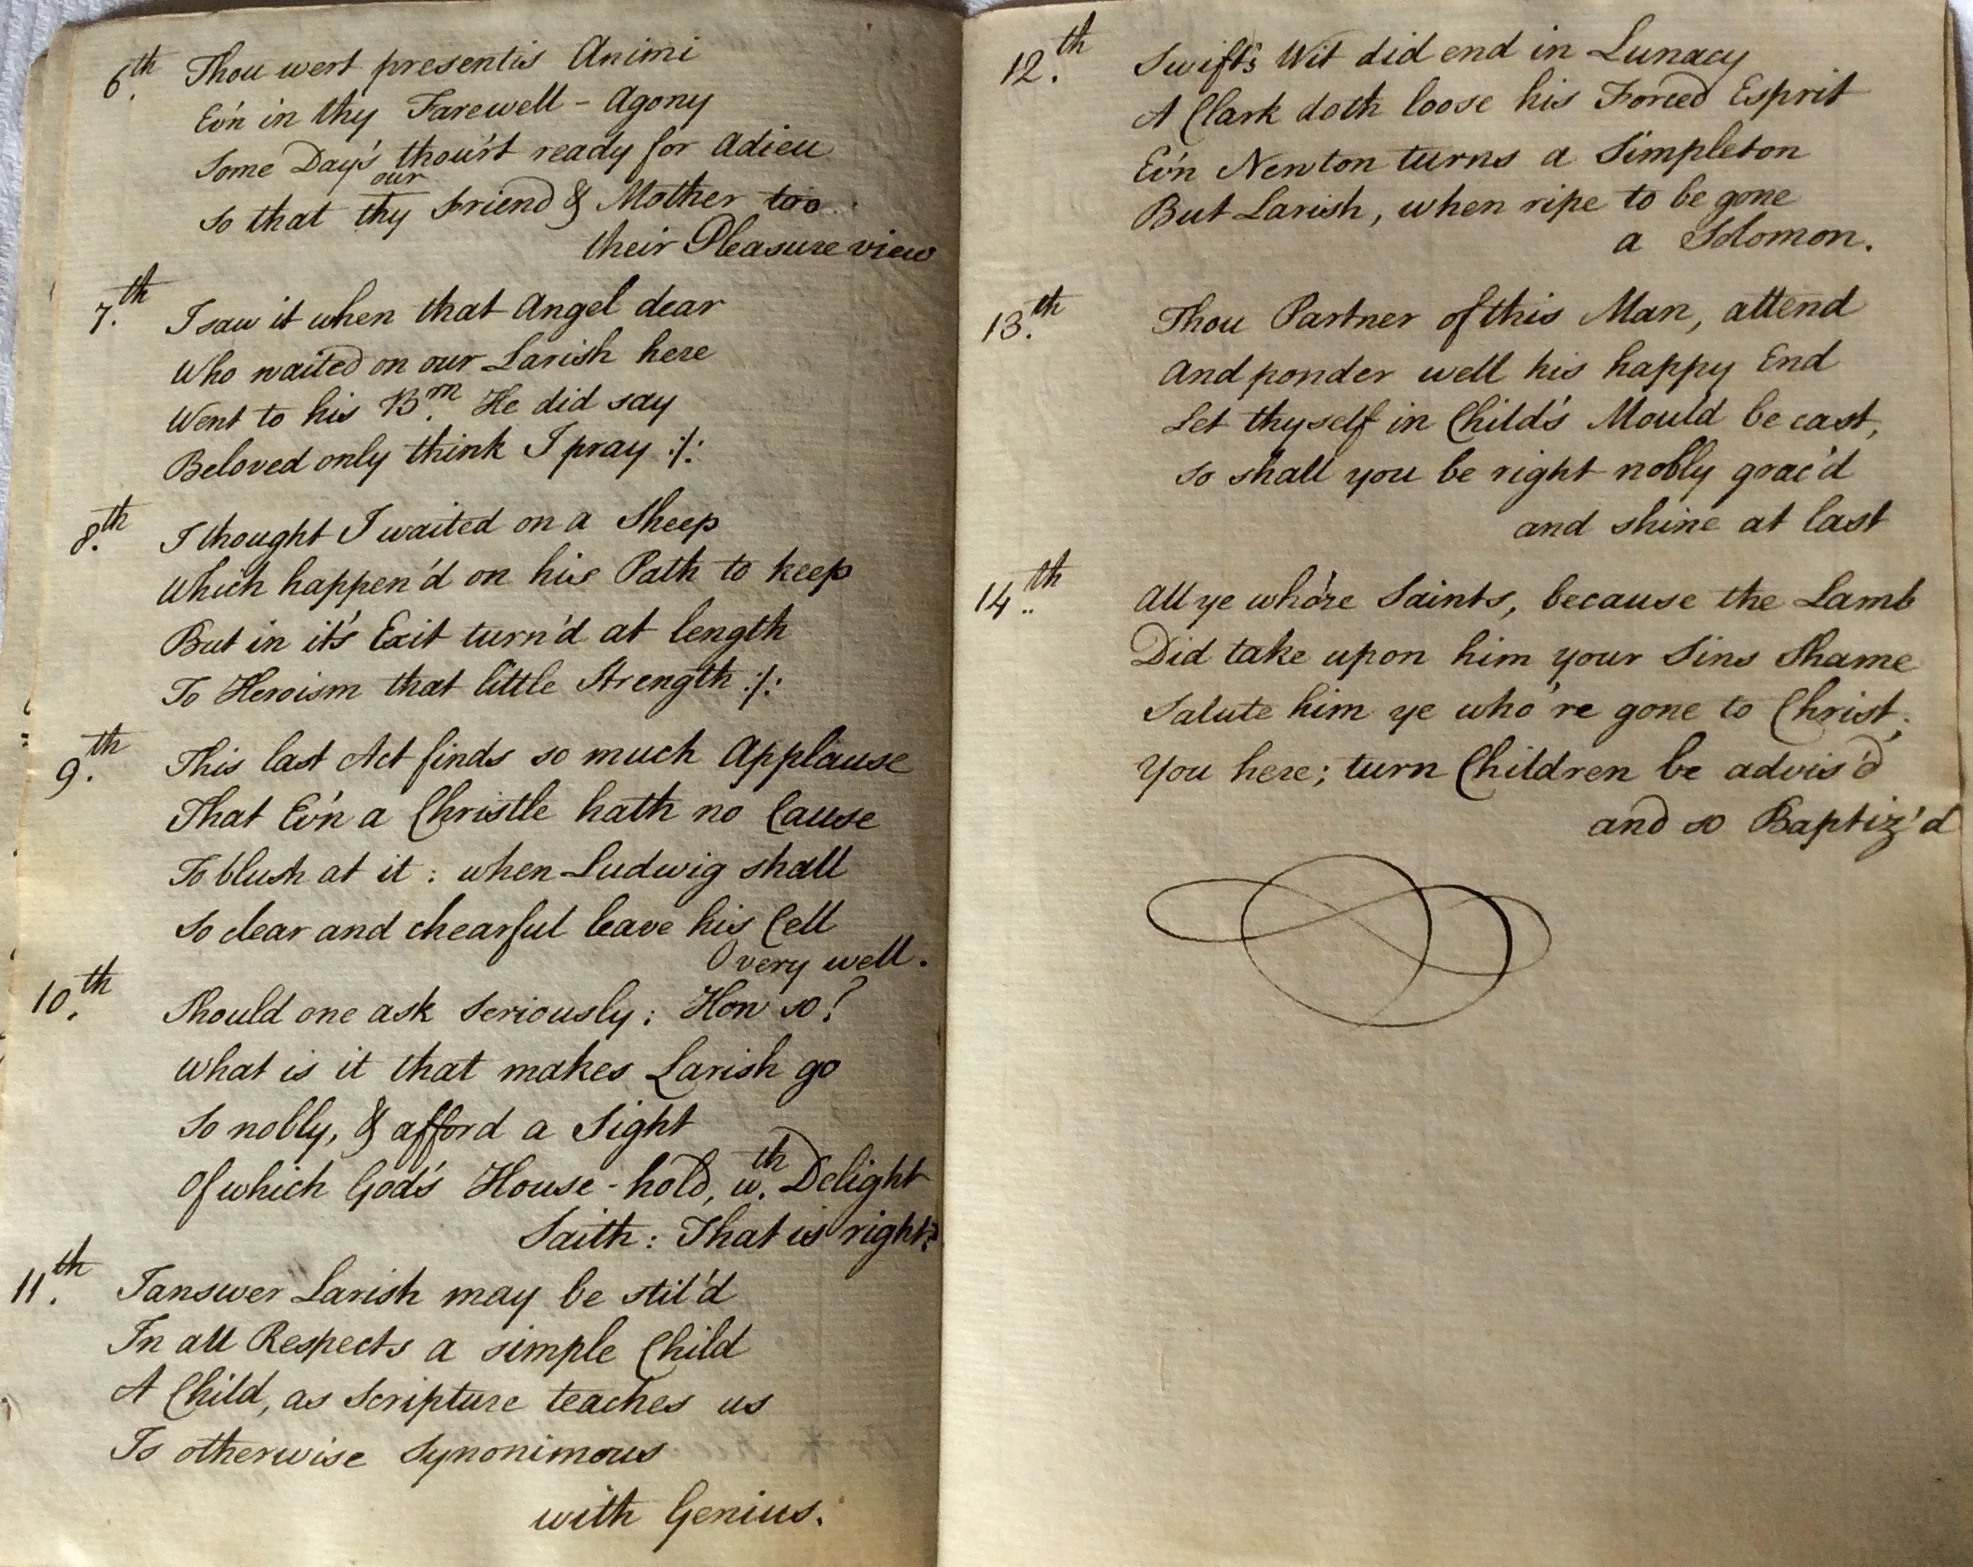 6.th Thou wert presentis Animi
Ev'n in thy Farewell - Agony
Some Day's thou'rt ready for Adieu
our
So that thy Friend & Mother too
their Pleasure view
7.th I saw it when that Angel dear
Who waited on our Larish here
Went to his Bm. He did say
Beloved only think I pray :/:
8.th I thought I waited on a Sheep
Which happen'd on his Path to keep
But in it's Exit turn'd at length
To Heroism that little Strength :/:
9.th This last Act finds so much Applause
That Ev'n a Christle hath no Cause
To blush at it : when Ludwig shall
So clear and chearful leave his Cell
O very well.
10.th Should one ask Seriously; How so?
What is it that makes Larish go
So nobly, & afford a Sight
Of which God's House-hold, w.th Delight
Saith: That is right?
11.th I answer Larish may be stil'd
In all Respects a simple Child
A Child, as Scripture teaches us
Is otherwise Synonimous
with Genius.
12.th Swift's Wit did end in Lunacy
A Clark doth loose his Forced Esprit
Ev'n Newton turns a Simpleton
But Larish, when ripe to be gone
a Solomon.
13.th Thou Partner of this Man, attend
And ponder well his happy End
Let thyself in Child's Mould be cast,
So shall you be right nobly grac'd
and shine at last
14.th All ye who're Saints, because the Lamb
Did take upon him your Sins Shame
Salute him ye who're gone to Christ;
You here; turn Children be advis'd
and so Baptiz'd